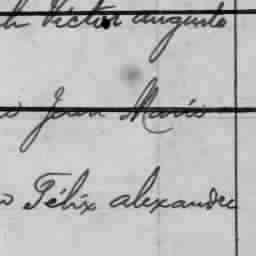 Victor auguste
Jean Marie
Félix alexandre